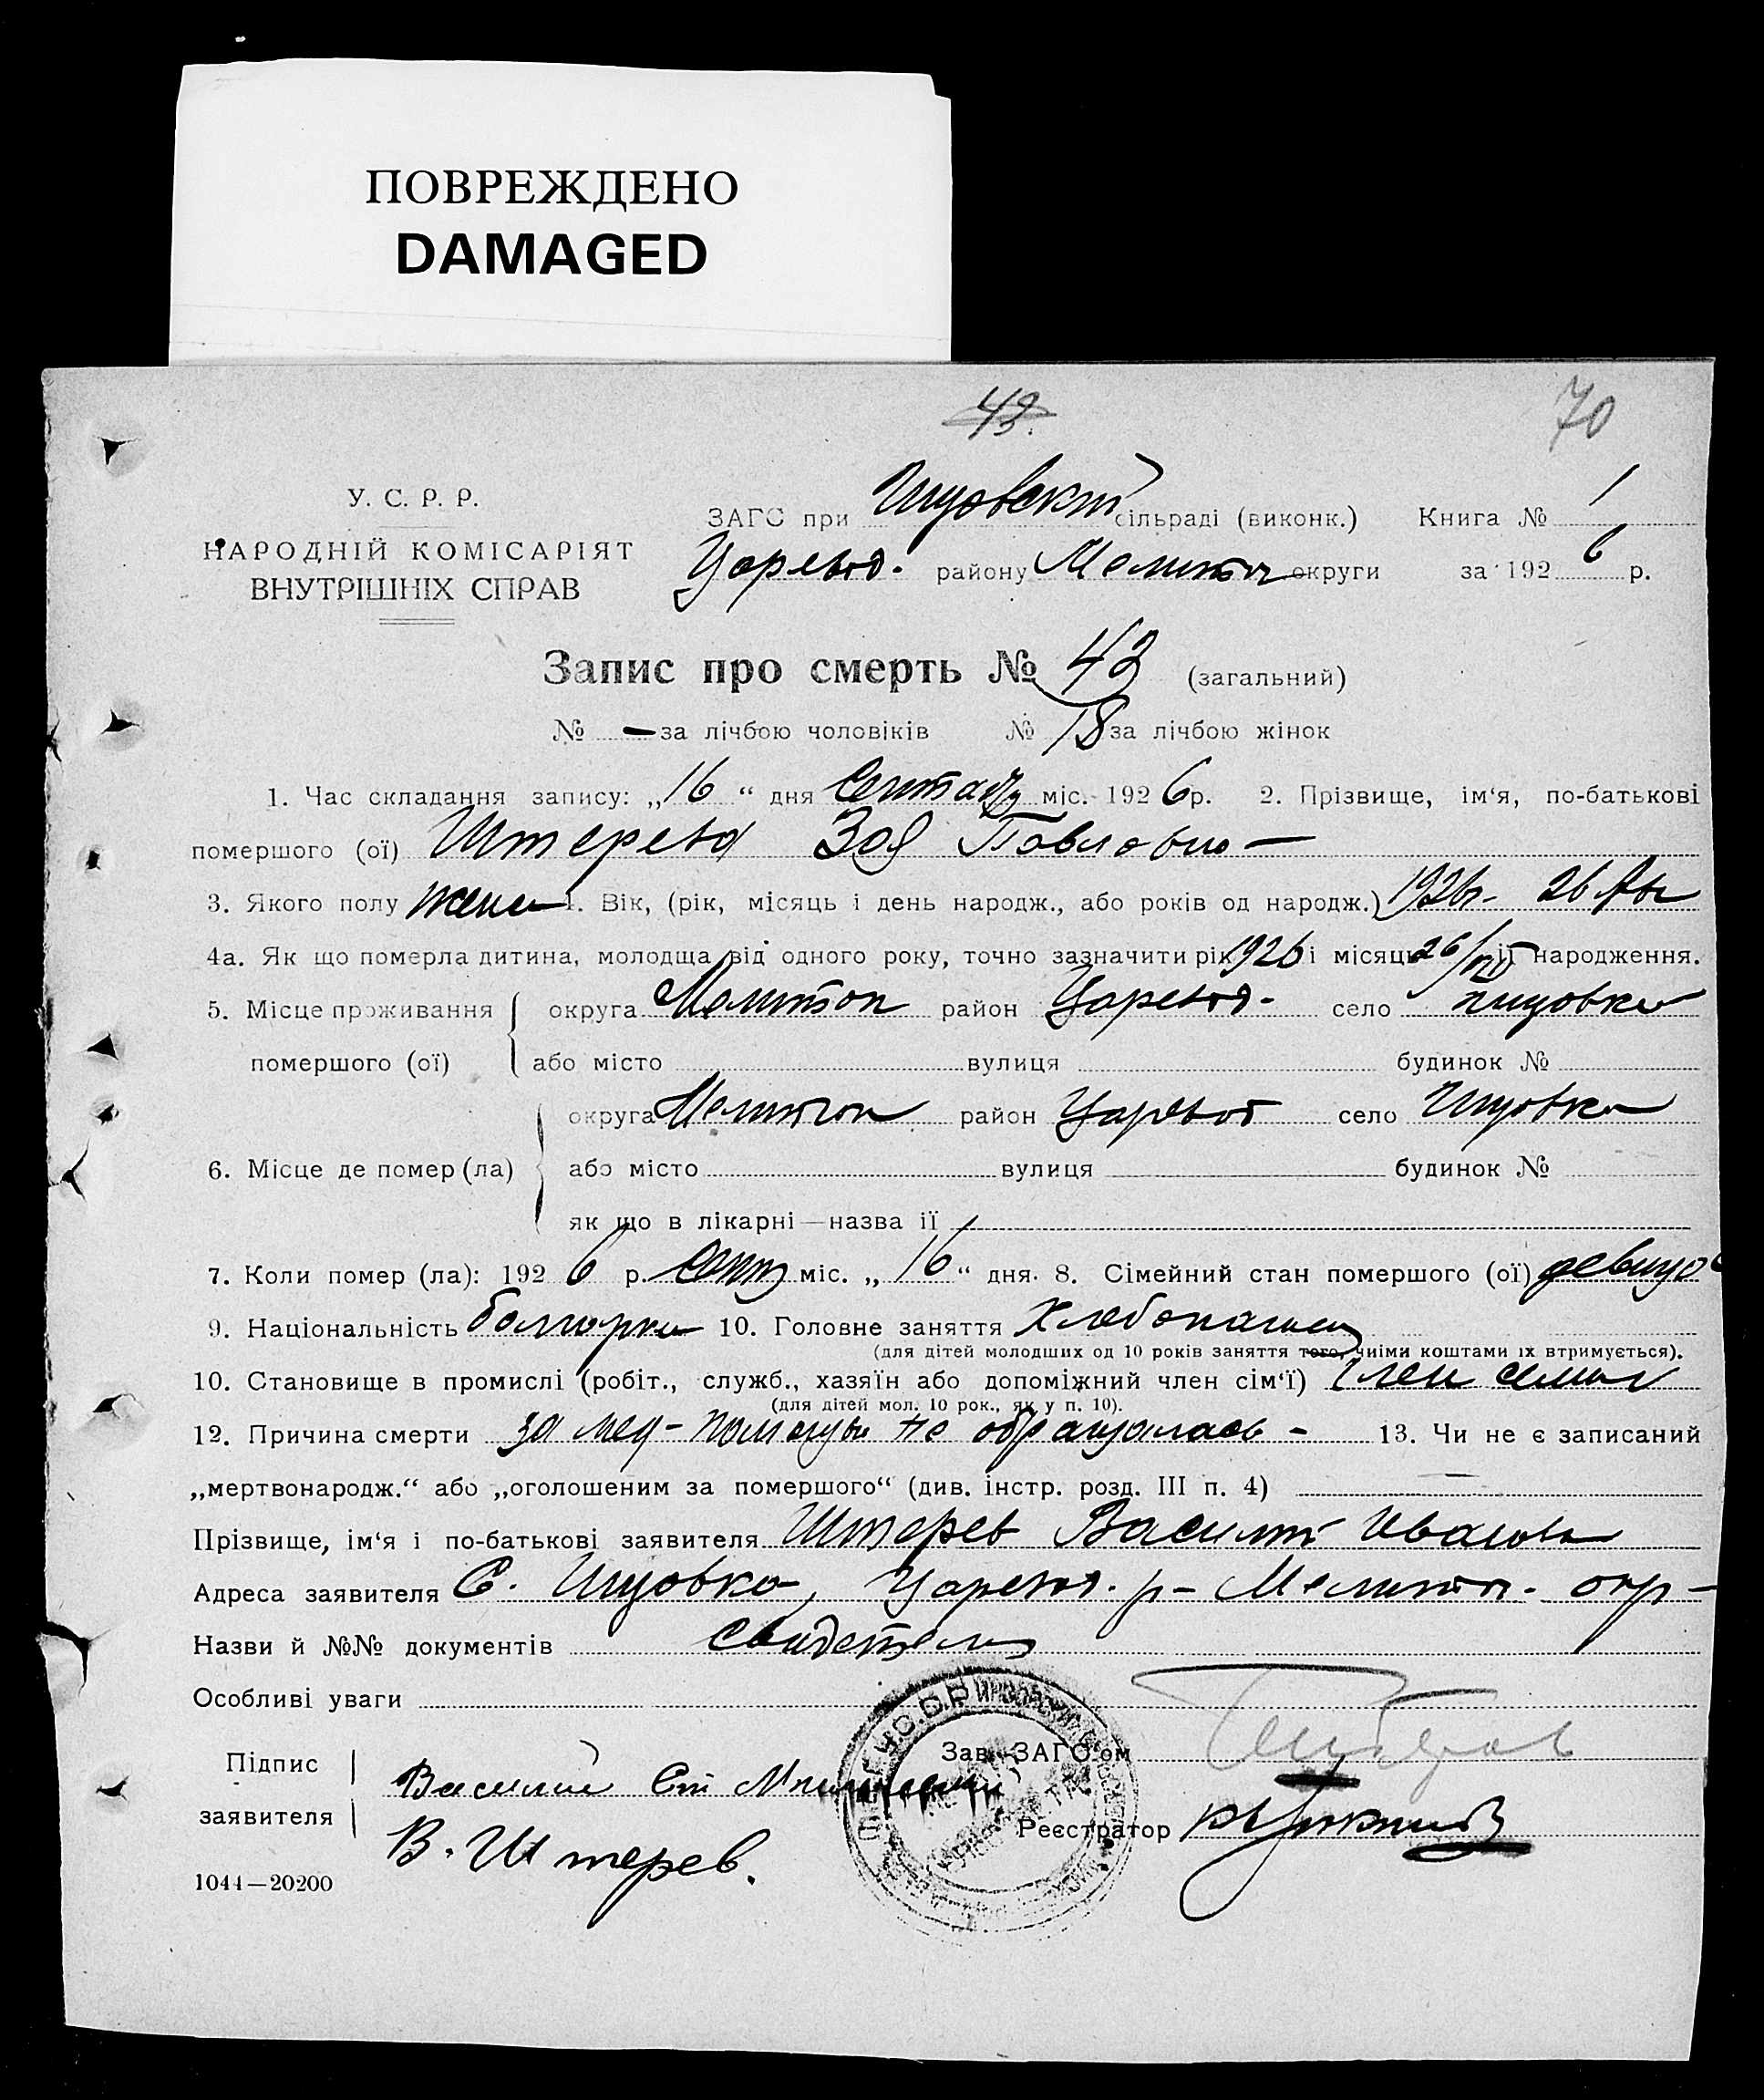 ПОВРЕЖДЕНО
DAMAGED
43.
70
У. С. Р. Р.
НАРОДНІЙ КОМІСАРІЯТ
ВНУТРІШНІХ СПРАВ
ЗАГС при сільраді (виконк.) Книга № 1
Царевод. району Мелитоп округи за 192 6 р.
Запис про смерть № 43 (загальний)
№ — за лічбою чоловіків № 18 за лічбою жінок
1. Час складання запису: „16“ дня міс. 192 6 р. 2. Прізвище, ім‘я, по-батькові
помершого (ої) Штерева Зоя Павловна —
3. Якого полу жен 4. Вік, (рік, місяць і день народж., або років од народж.) 1926г. 26 Авг
4а. Як що померла дитина, молодща від одного року, точно зазначити рік 1926 і місяць 26/VIII її народження.
5. Місце проживання округа Мелитоп район Царевод. село
помершого (ої) або місто вулиця будинок №
округа Мелитоп район Царевод село
6. Місце де помер (ла) або місто вулиця будинок №
як що в лікарні — назва її
7. Коли помер (ла): 192 6 р. Сент міс. „16“ дня. 8. Сімейний стан помершого (ої) девица
9. Національність болгарка 10. Головне заняття Хлебопашец
(для дітей молодших од 10 років заняття того, чиїми коштами їх втримується).
10. Становище в промислі (робіт., служб., хазяїн або допоміжний член сім‘ї) член семьи
(для дітей мол. 10 рок., як у п. 10).
12. Причина смерти за мед-помощью не обращалась - 13. Чи не є записаний
„мертвонародж.“ або „оголошеним за помершого“ (див. інстр. розд. III п. 4) —
Прізвище, ім‘я і по-батькові заявителя Штерев Василий Иванов
Адреса заявителя С. Царевод. р- Мелитоп. окр-
Назви й №№ документів свидетели
Особливі уваги
Підпис Зав. ЗАГС‘ом
заявителя Василий
Реєстратор
В. Штерев.
1044—20200